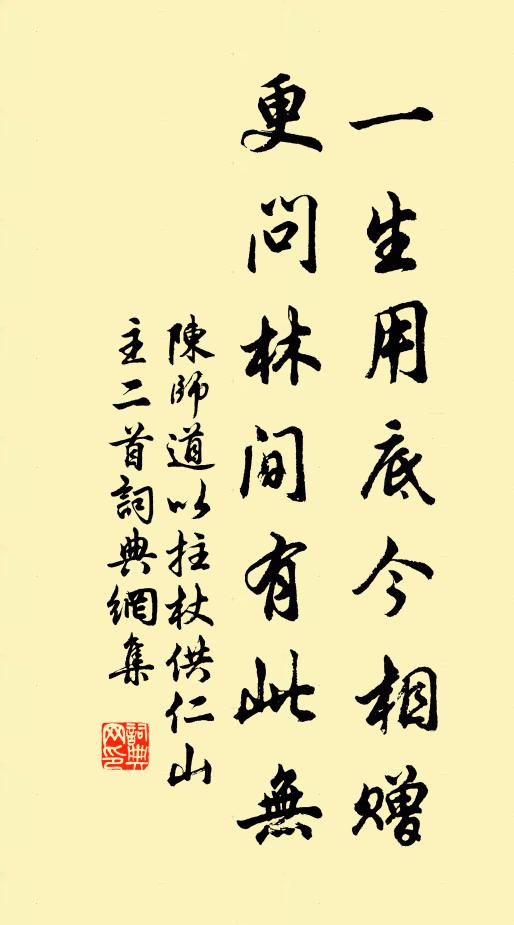 一生用底今相贈
更問林間有此無
陳師道以拄杖供仁山
主二首詞典網集
詞典網印